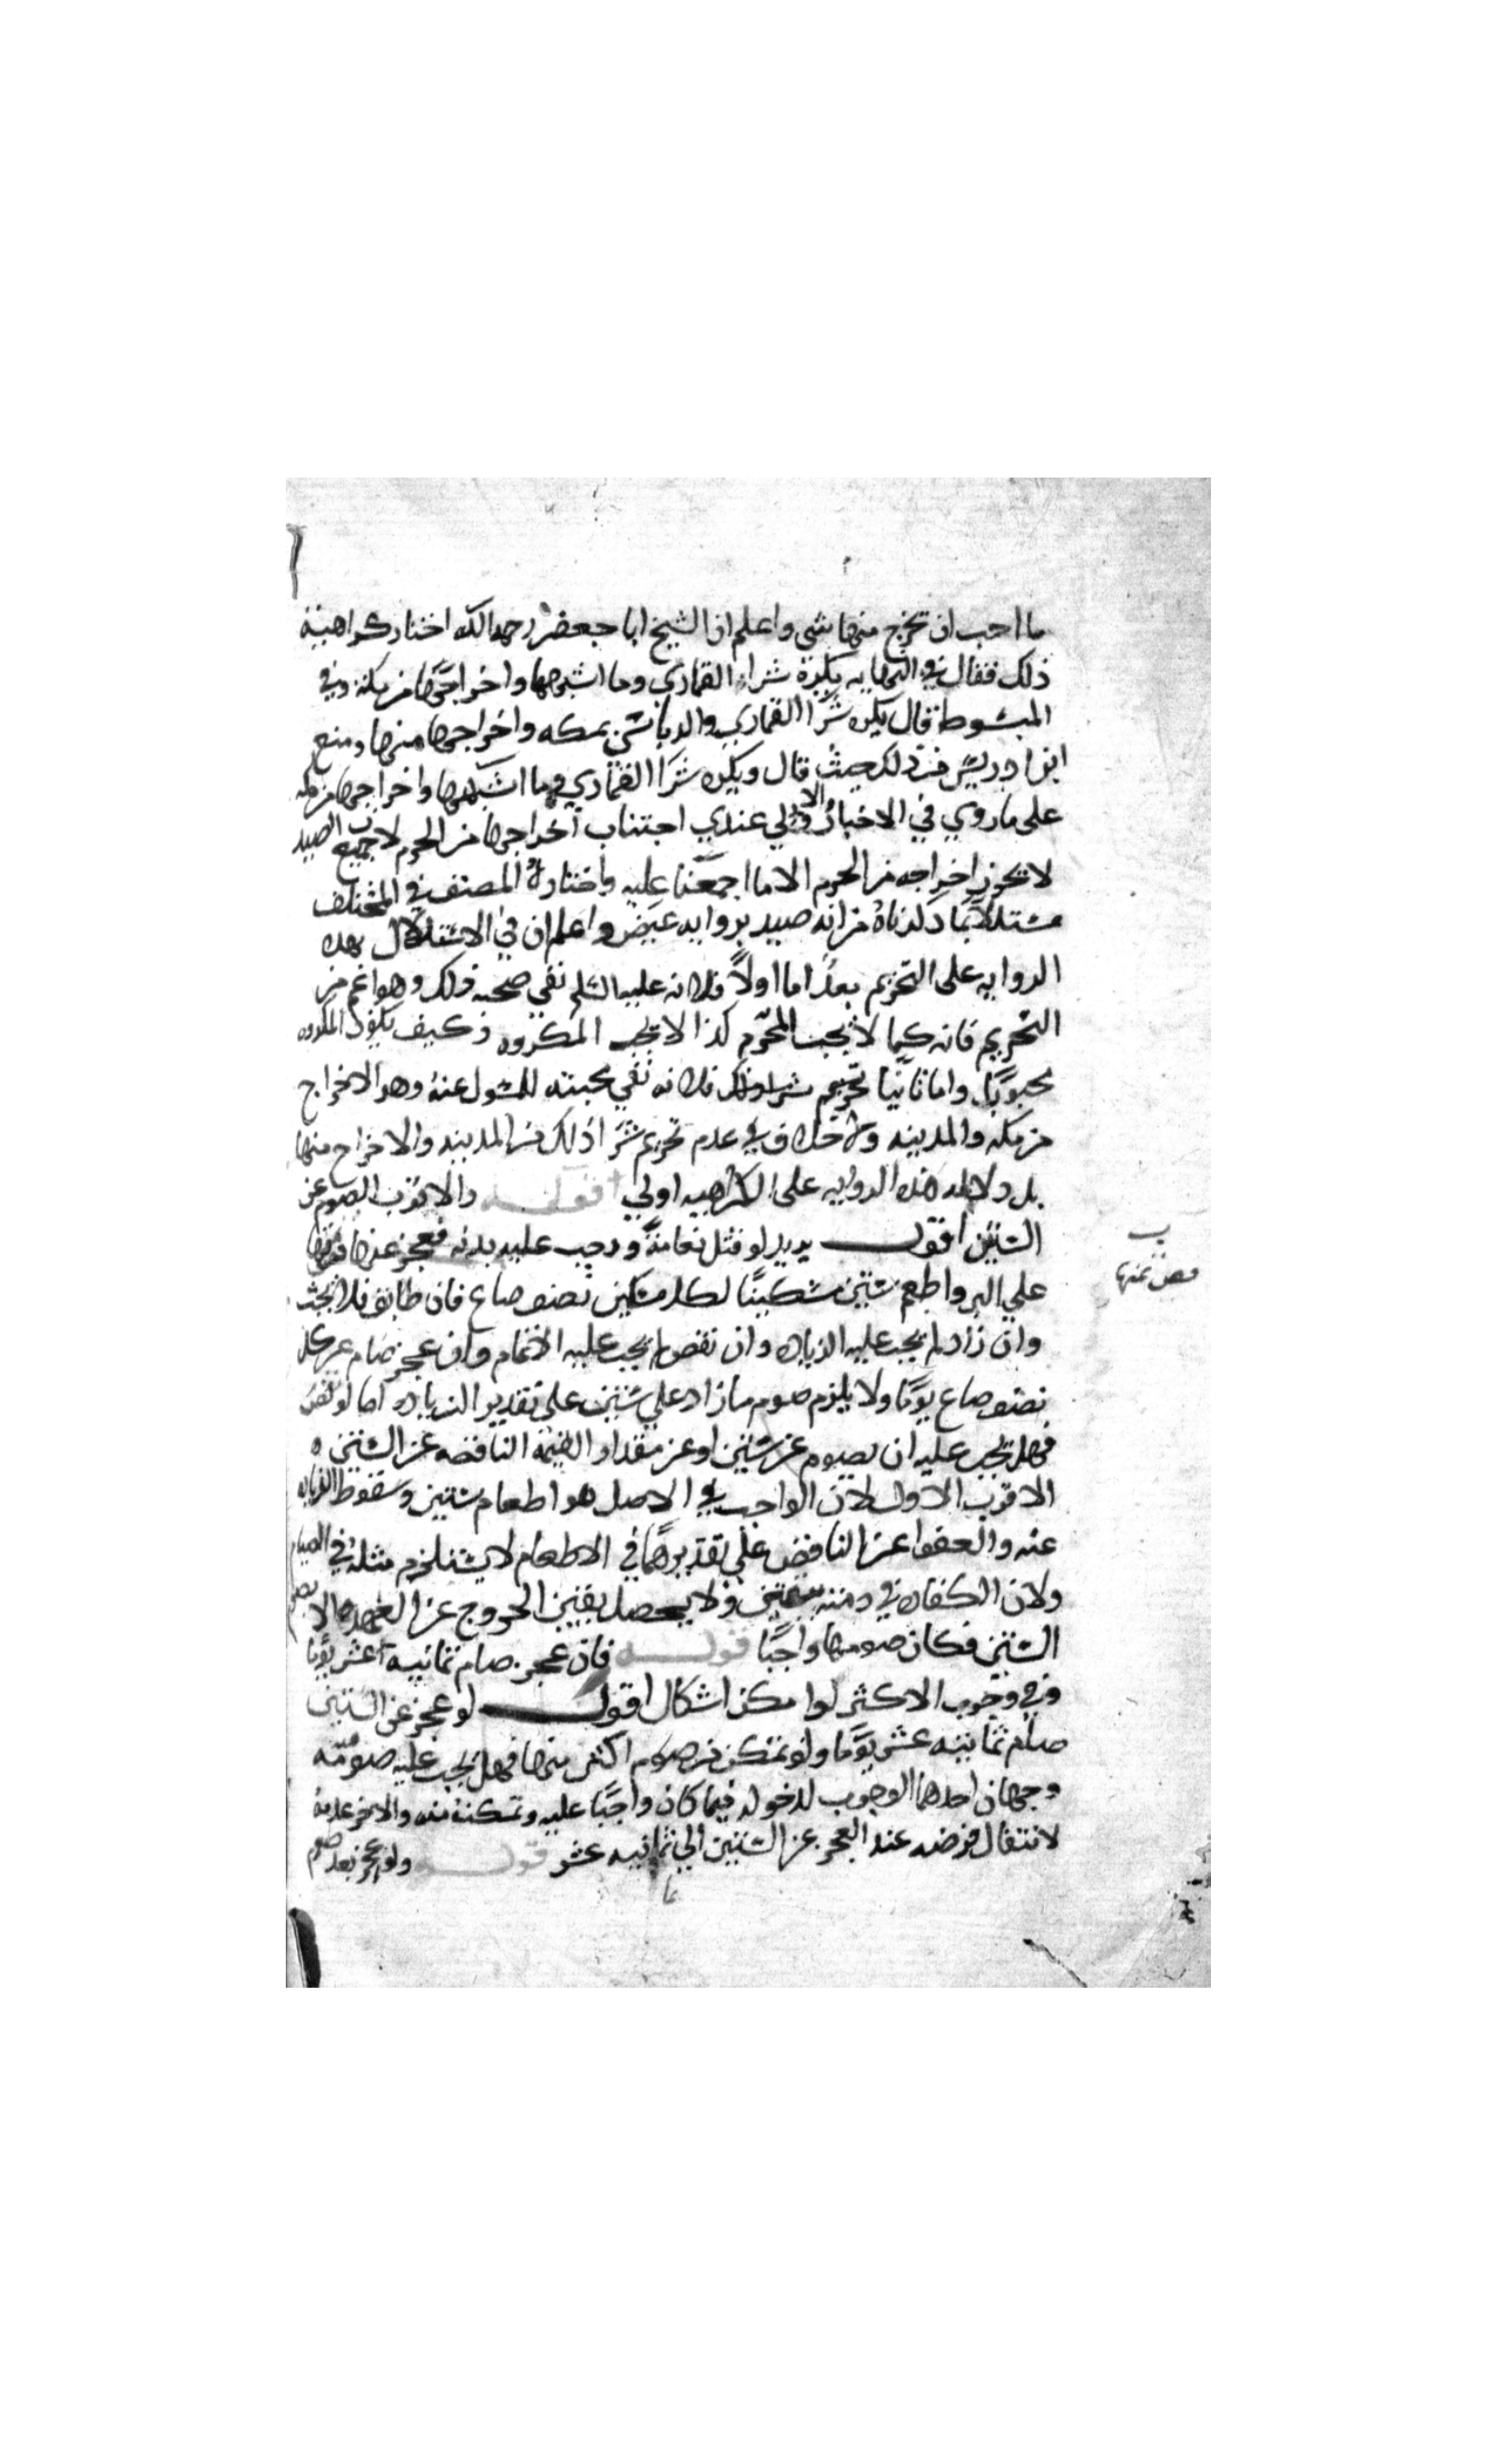 ما احب ان تخرج منها شي واعلم ان الشيخ ابا جعفر رحمه الله اختار كراهية
ذلك فقال في النهايه يكره شراء القماري وما اشبهها واخراجها من مكة وفي
المبسوط قال يكره شرا القماري والدباسي بمكه واخراجها منها ومنع
ابن ادريس من ذلك حيث قال ويكره شرا القماري وما اشبهها واخراجها من مكه
على ما روي في الاخبار والاولي عندي اجتناب اخراجها من الحرم لان جميع الصيد
لا يجوز اخراجه من الحرم الا ما اجمعنا عليه واختاره المصنف في المختلف
مستدلا بما ذكرناه من انه صيد بروايه عيص واعلم ان في الاستدلال بهذه
الروايه على التحريم بعدا اما اولا فلانه عليه السلم نفي صحبه ذلك وهو اعم من
التحريم فانه كما لا يجب المحرم كذا لا يجب المكروه وكيف يكون المكروه
محبوبا واما ثانيا تحريم شراء ذلك فلانه نفي محبته للمسول عنه وهو الاخراج
من مكه والمدينه ولا خلاف في عدم تحريم شرا ذلك من المدينه والاخراج منها
بل دلاله هذه الروايه على الكراهيه اولي قوله والاقرب الصوم عن
الستين اقول يريد لو قتل نعامة ووجب عليه بدنه فعجز عنها فض ثمنها
علي البر واطعم ستين مسكينا لكل مسكين نصف صاع فان طابق فلا بحث
وان زاد لم يجب عليه الزياده وان نقص لم يجب عليه الاتمام وان عجز صام عن كل
نصف صاع يوما ولا يلزم صوم ما زاد علي ستين علي تقدير الزياده اما لو نقص
فهل يجب عليه ان يصوم عن ستين او عن مقدار القيمة الناقصه عن الستين ه
الاقرب الاول لان الواجب في الاصل هو اطعام ستين وسقوط الزياده
عنه والعفوا عن الناقص علي تقديرهما في الاطعام لا يستلزم مثله في الصيام
ولان الكفاره في ذمته بيقين ولا يحصل يقين الخروج عن العهده الا بصوم
الستين فكان صومها واجبا قوله فان عجز صام ثمانيه عشر يوما
وفي وجوب الاكثر لو امكن اشكال اقول لو عجز عن الستين
صام ثمانيه عشر يوما ولو تمكن من صوم اكثر منها فهل يجب عليه صومه
وجهان احدهما الوجوب لدخوله فيما كان واجبا عليه وتمكنه منه والاخر عدمه
لانتقال فرضه عند العجز عن الستين الي ثمانيه عشر قوله ولو عجز بعد صوم
ب
فض ثمنها